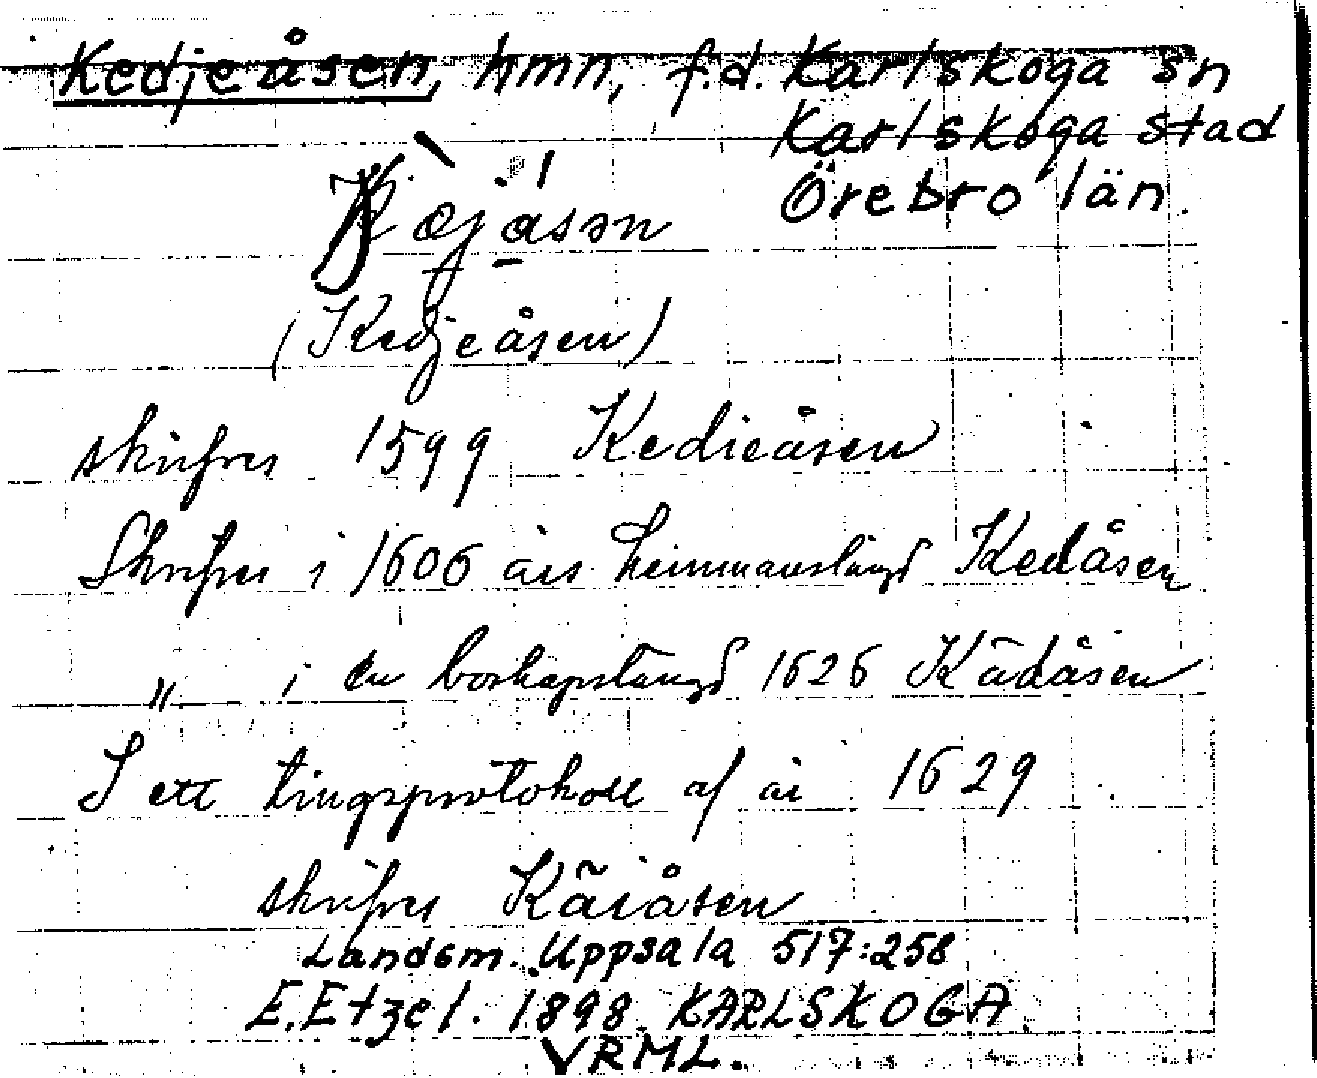 Kedjeåsen, hmn, f.d. Karlskoga sn
Karlskoga stad
Örebro län
(Kedjeåsen)
skrifves 1599 Kedieåsen
Skrifves i 1606 års hemmanslängd Kedåsen
" i en boskapslängd 1626 Kädåsen
I ett tingsprotokoll af år 1629
skrifves Käiåsen
Landsm. Uppsala 517:258
E. Etzel. 1898. KARLSKOGA
VRML.